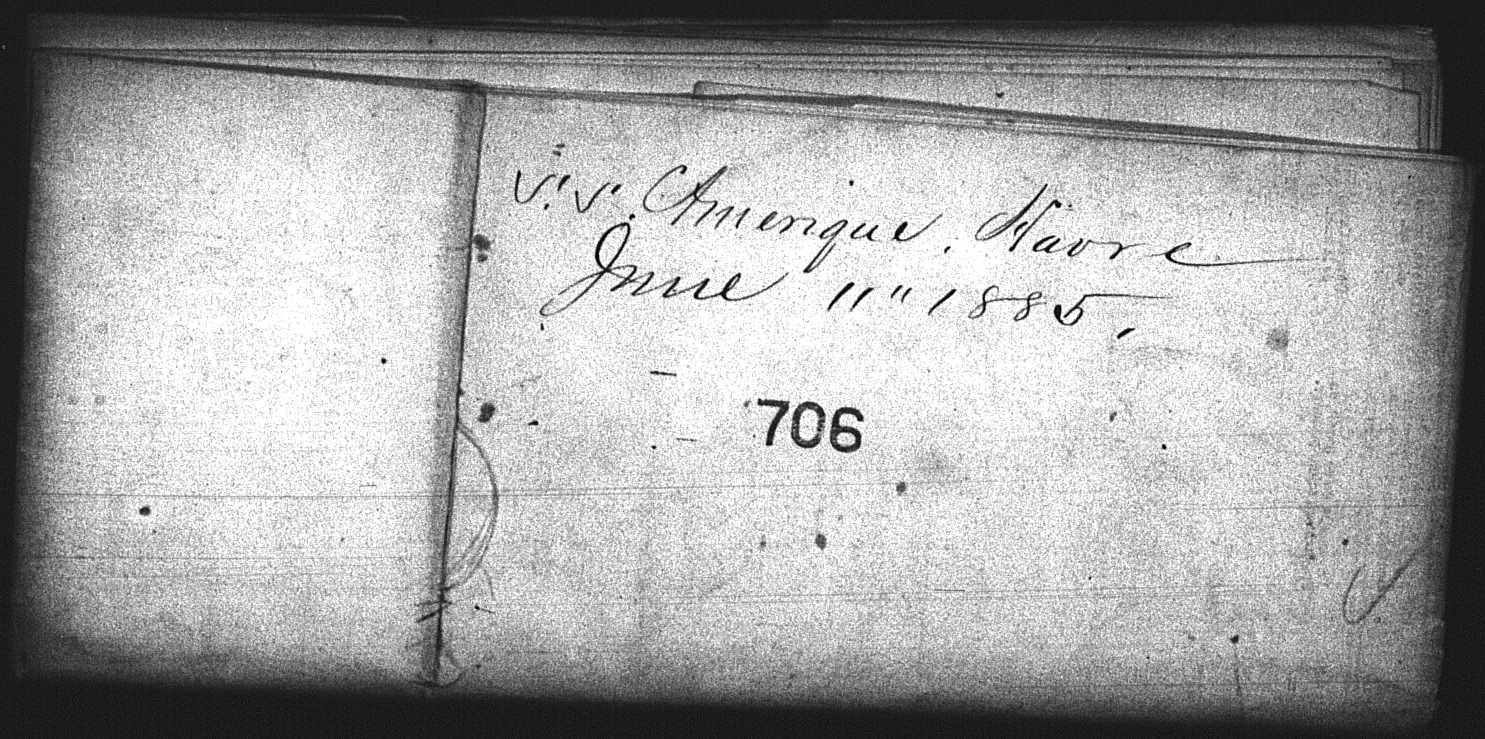 S. S. Amerique. Havre
June 11" 1885.
706